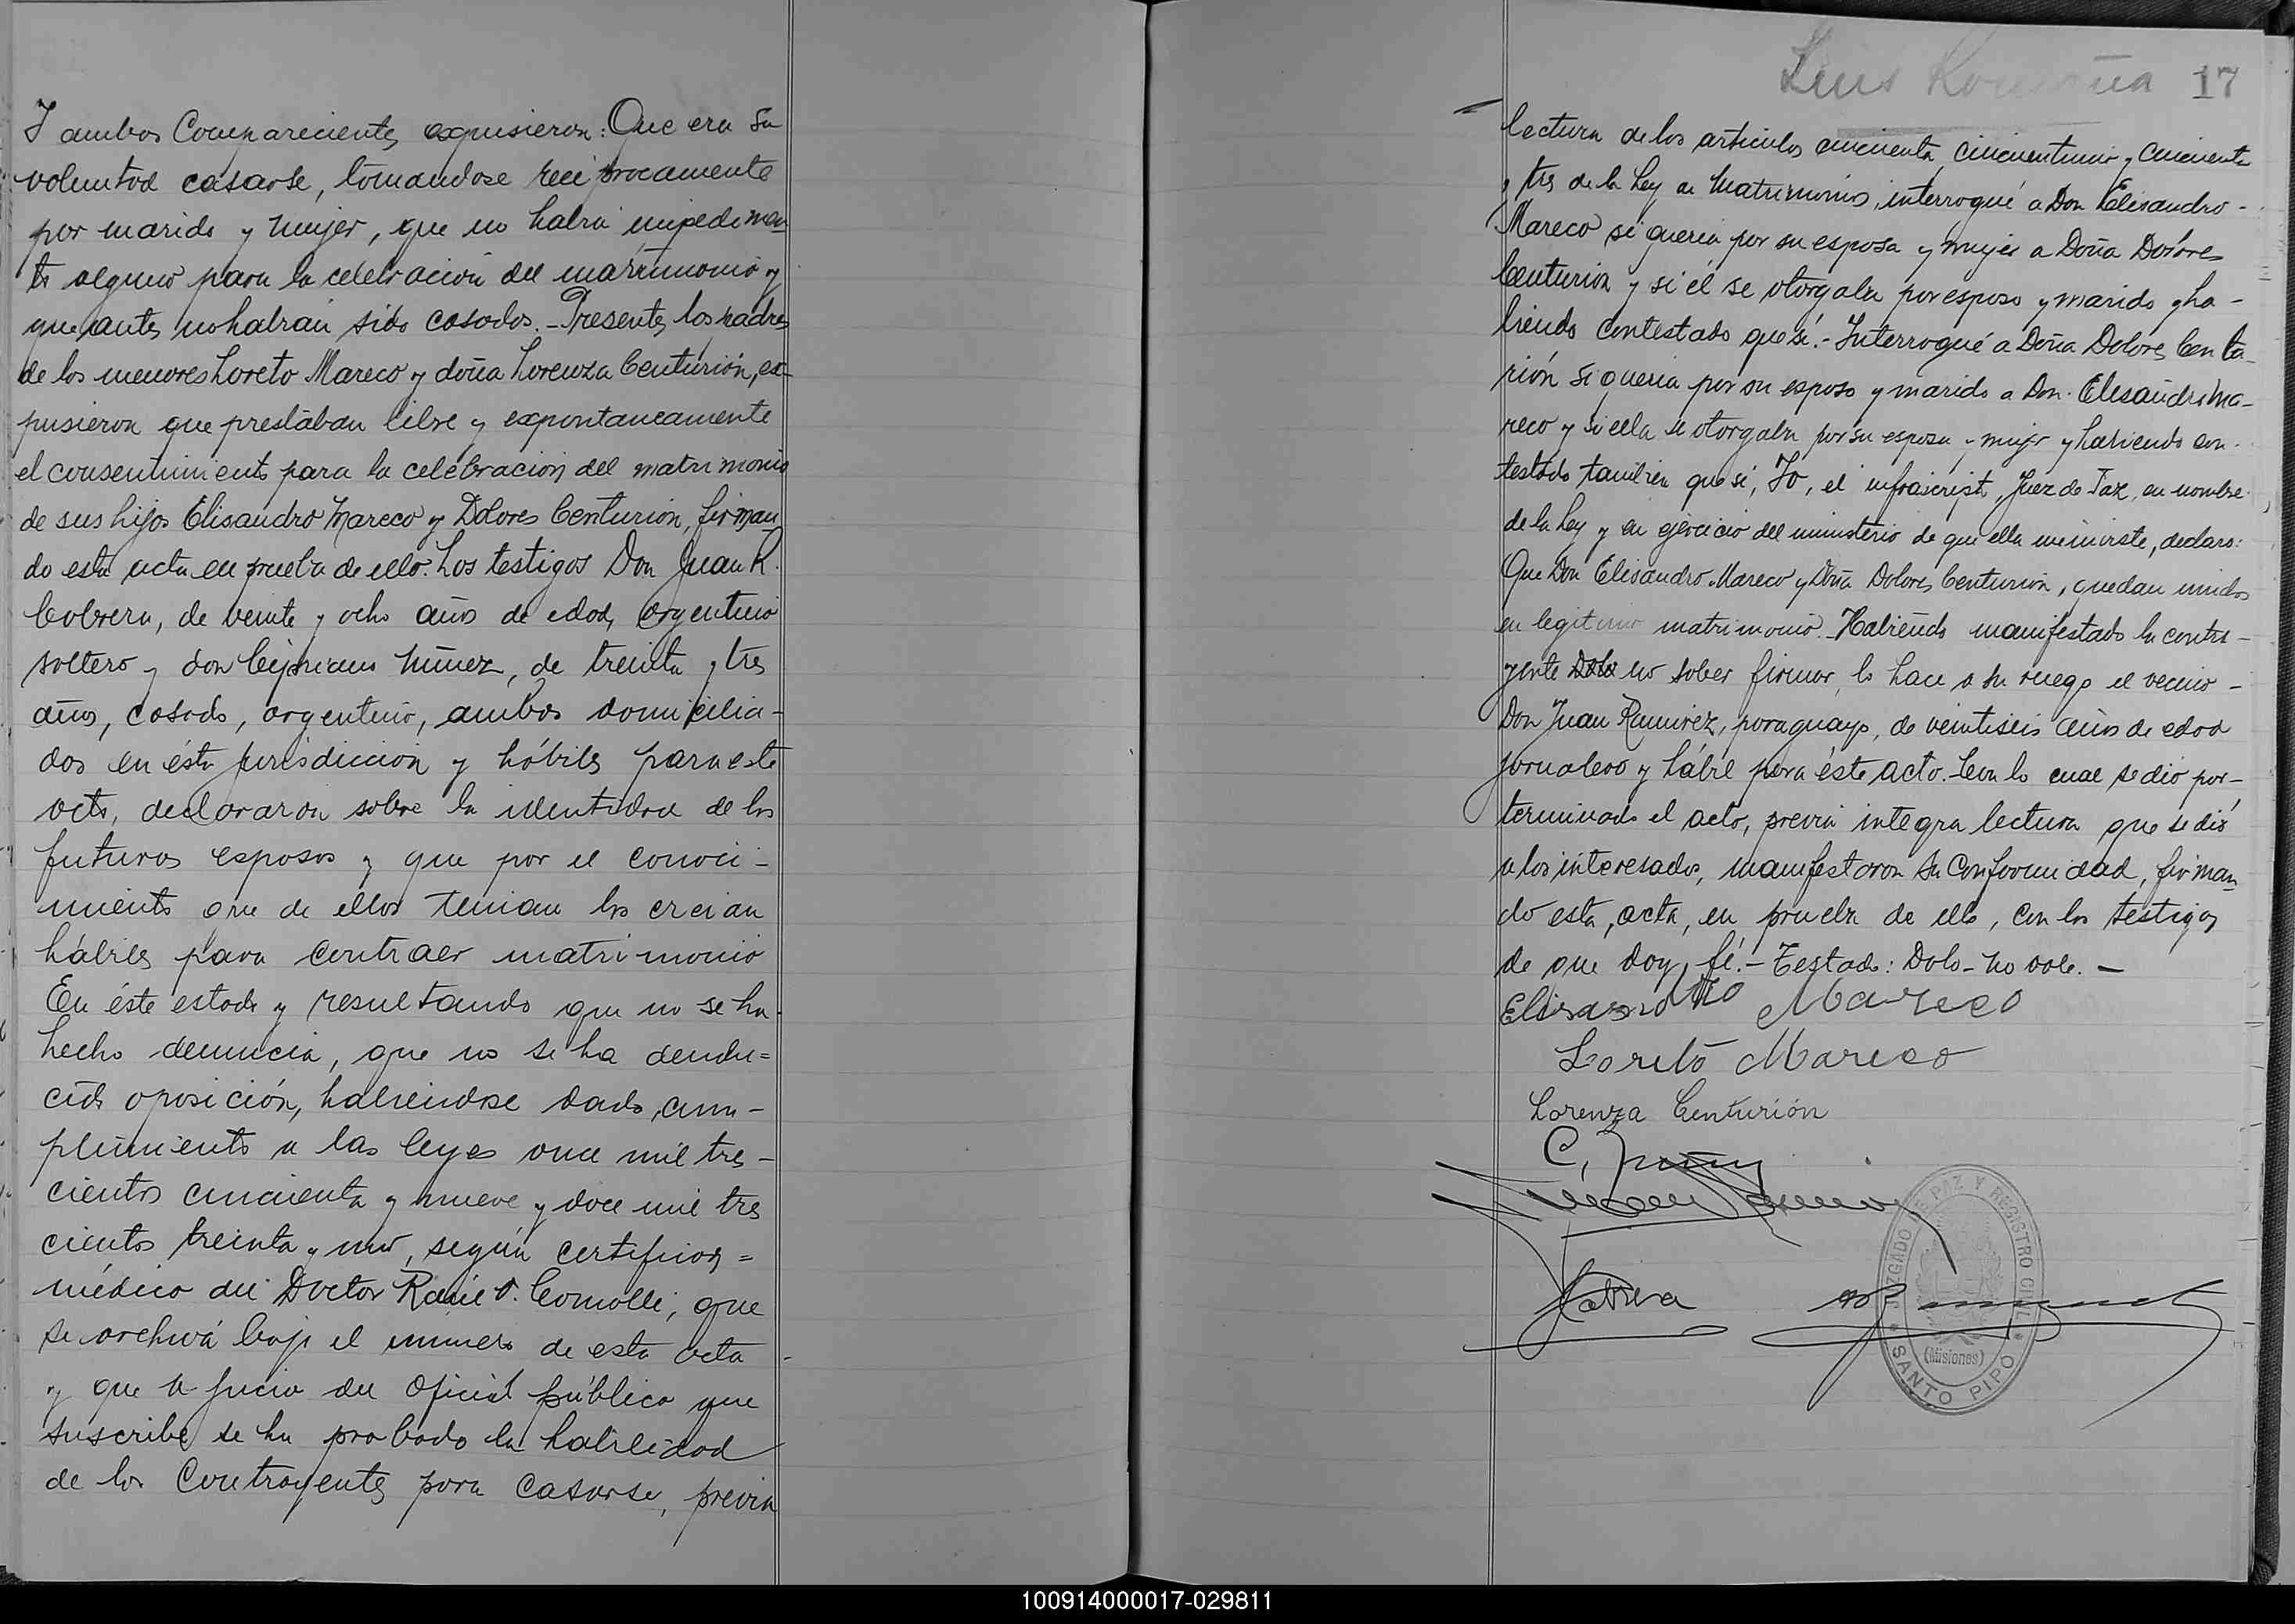 Y ambos Comparecientes expusieron: Que era su
voluntad casarse, tomandose reciprocamente
por marido y mujer, que no habia impedimen
to alguno para la celebración del matrimonio y
que antes no habian sido casados.- Presentes los padres
de los menores Loreto Mareco y doña Lorenza Centurión, ex-
pusieron que prestaban libre y expontaneamente
el consentimiento para la celebración del matrimonio
de sus hijos Elisandro Mareco y Dolores Centurion, firman
do esta acta en prueba de ello. Los testigos Don Juan R.
Cabrera, de veinte y ocho años de edad, argentino
soltero y don Cipriano Núnez, de treinta y tres
años, casado, argentino, ambos domicilia-
dos en ésta jurisdicción y hábiles para este
acto, declararon sobre la identidad de los
futuros esposos y que por el conoci-
miento que de ellos tenian los creian
hábiles para contraer matrimonio
En éste estado y resultando que no se ha
hecho denuncia, que no se ha dendu=
cido oposición, habiendose dado, cum-
plimiento a las leyes once mil tres-
cientos cincuenta y nueve y doce mil tres
cientos treinta y uno, según certificado=
médico del Doctor Raúl O. Comolli, que
se archiva bajo el número de esta acta
y que a juicio del Oficial público que
suscribe se ha probado la habilidad
de los Contrayentes para casarse, previa
Luis 17
lectura de los articulos cincuenta, cincuentiuno y cincuenta
y tres de la Ley de Matrimonio, interrogué a Don Elisandro-
Mareco si queria por su esposa y mujer a Doña Dolores
Centurion y si él se otorgaba por esposo y marido y ha-
biendo contestado que sí.- Interrogué a Doña Dolores Centu-
rión si queria por su esposo y marido a Don. Elisandro Ma-
reco y si ella se otorgaba por su esposa y mujer y habiendo con-
testado tambien que si, Yo, el infrascripto, Juez de Paz, en nombre
de la Ley y en ejercicio del ministerio de que ella me inviste, declaro:
Que Don Elisandro Mareco y Doña Dolores Centurión, quedan unidos
en legitimo matrimonio. Habiendo manifestado la contra-
yente Dolo no saber firmar, lo hace a su ruego el vecino-
Don Juan Ramirez, paraguayo, de veintiseis años de edad
jornalero y hábil para éste acto. Con lo cual se dió por-
terminado el acto, previa integra lectura que se dió
a los interesados, manifestaron su Conformidad, firman
do esta, acta, en prueba de ello, con los testigos
de que doy, fé.- Testado: Dolo- no vale. -
Elisandro Mareco
Loreto Mareco
Lorenza Centurión
C.
Cabrera
JUZGADO DE PAZ Y REGISTRO CIVIL
(Misiones)
* SANTO PIPO *
100914000017-029811